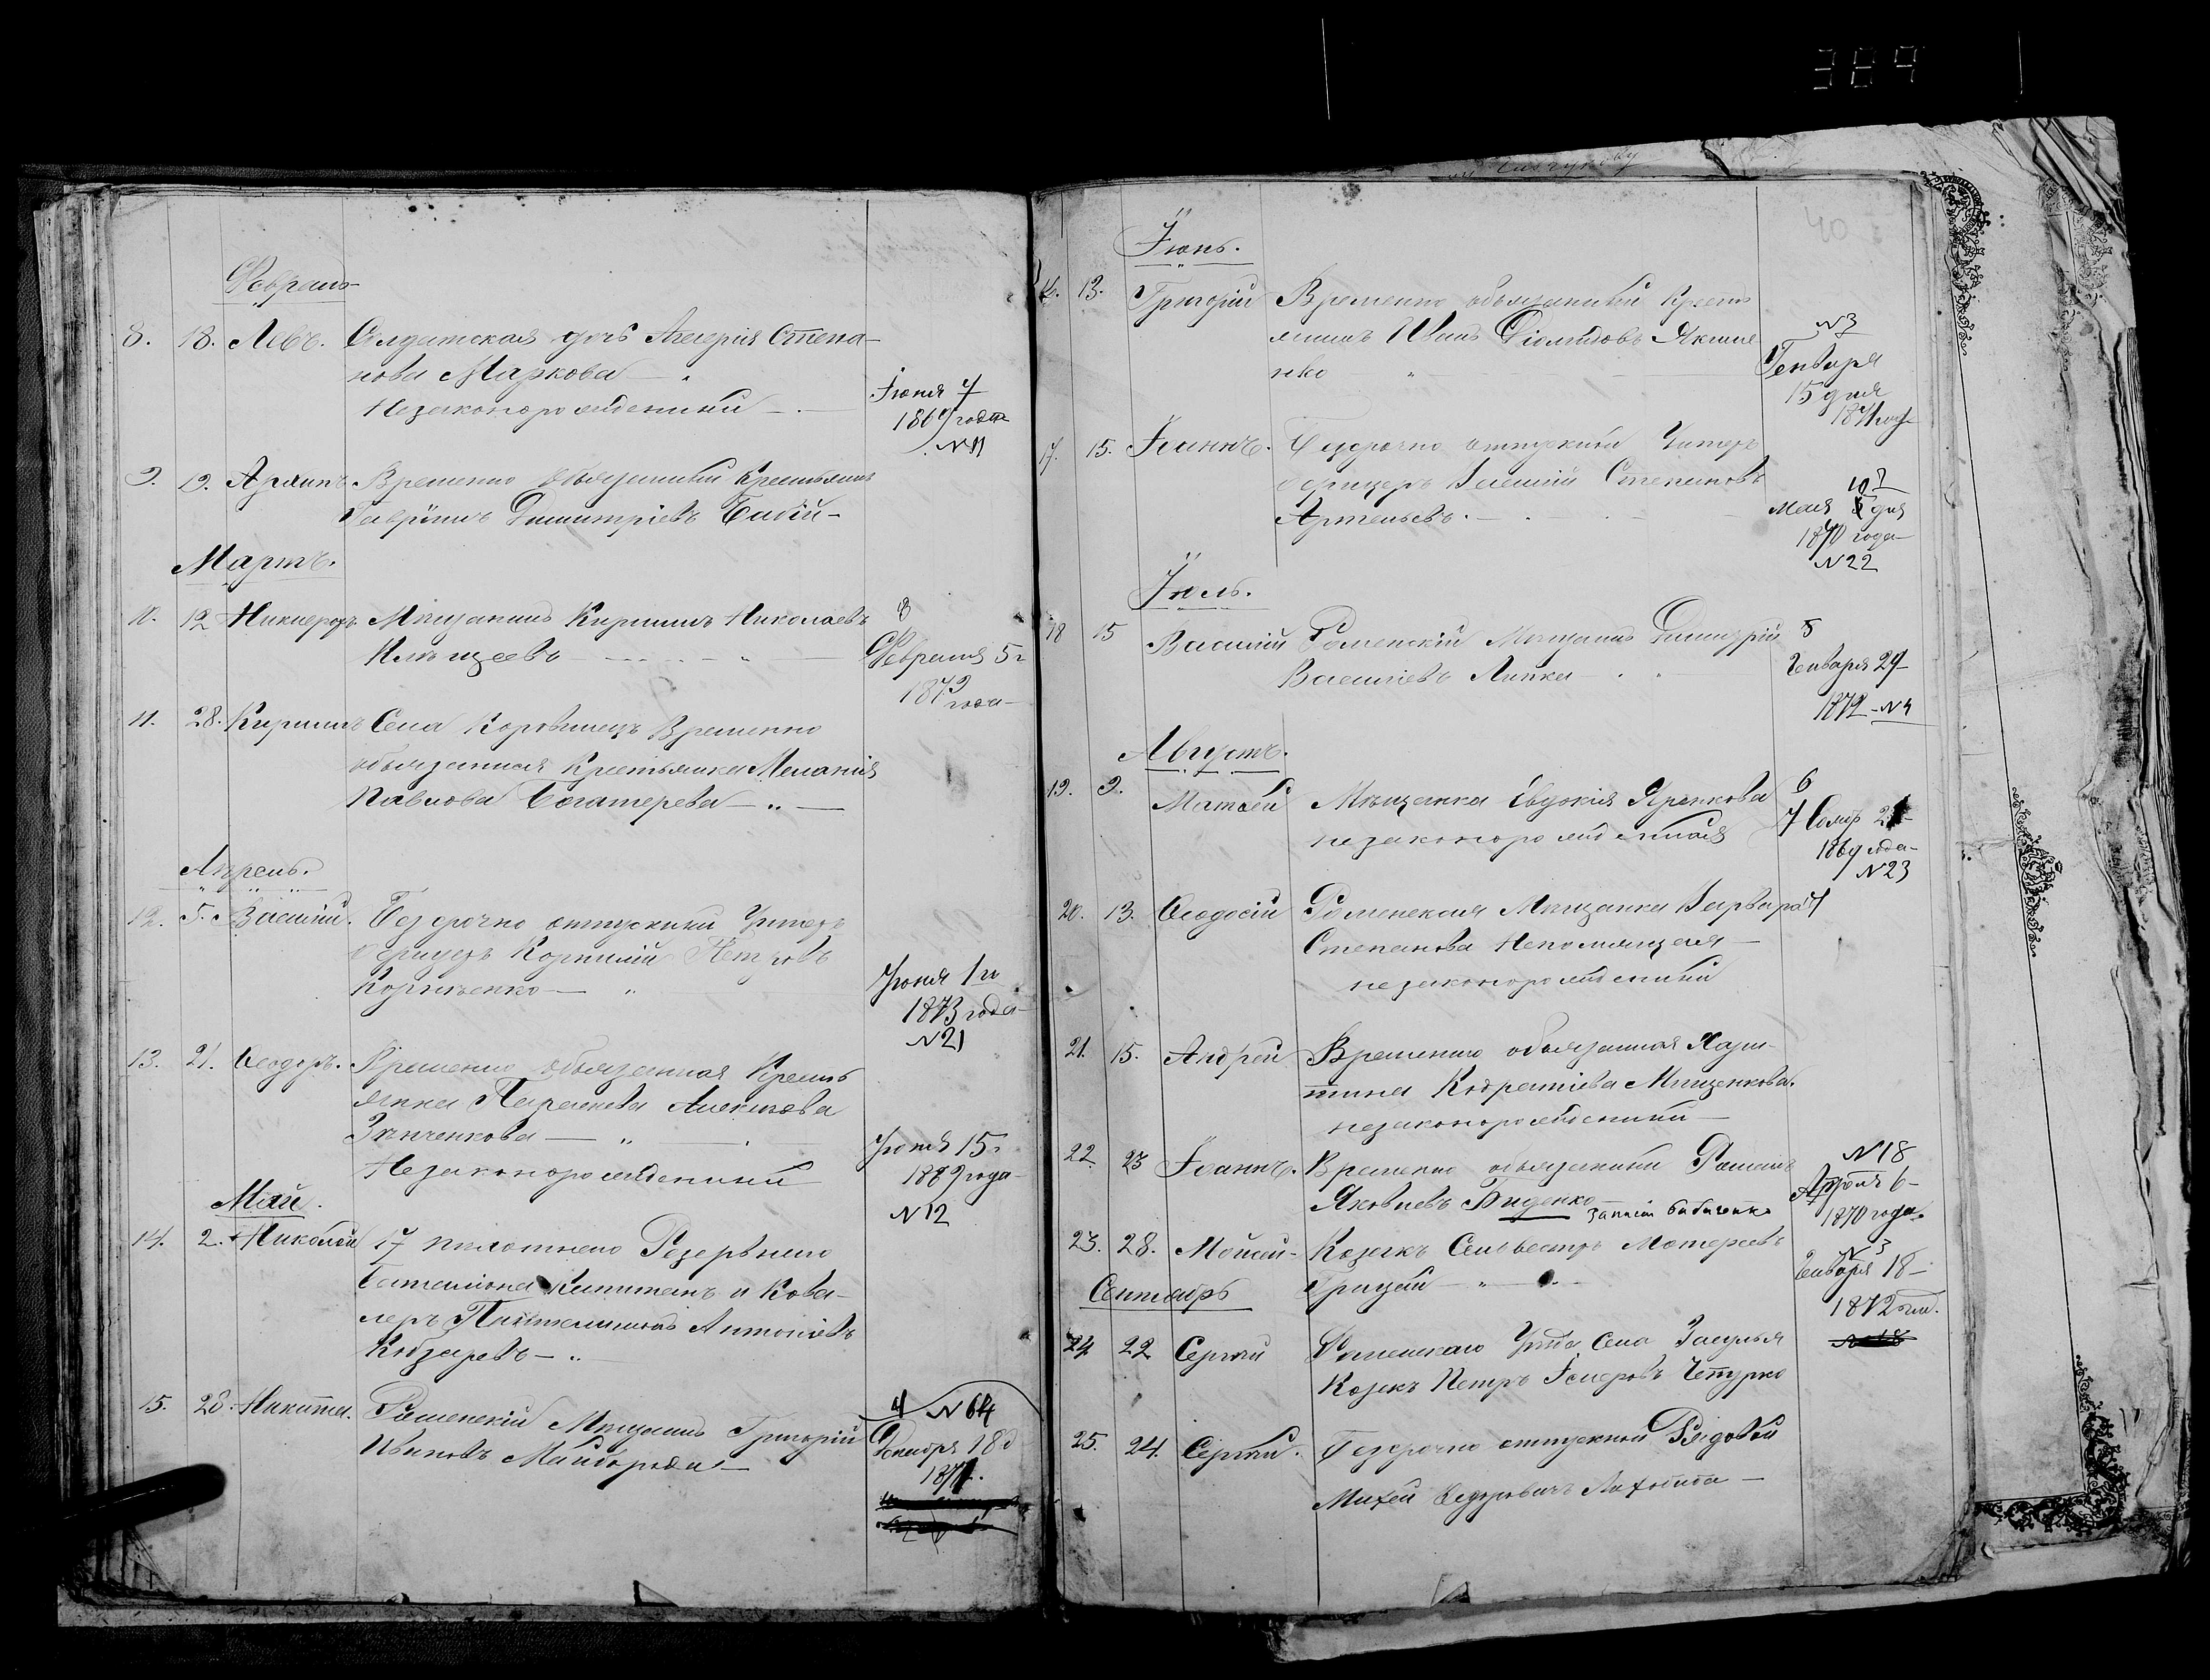 384
40
Февраль
8. 18. Левъ. Солдатская дочь Агаерія Степа-
нова Маркова
Незаконорожденный
Іюня 4
1869 года
N 11
9. 19. Архипъ Временно обязанный Крестьянинъ
Гаврiилъ Димитріевъ Бабій
Мартъ.
10. 12 Никифоръ Мѣщанинъ Кириллъ Николаевъ
Клѣщеевъ
8
Февраля 5
1872 года
11. 28. Кириллъ Села Коровинецъ Временно
обязанная Крестьянка Меланія
Павлова Богатерева
Апрель.
12. 5. Василій. Безсрочно отпускный Унтеръ
Офицеръ Корнилій Петровъ
Корніенко
Іюня 1го
1873 года
N 21
13. 21. Ѳеодоръ. Временно обязанная Кресть
янка Параскева Алексѣева
Зѣнченкова
Незаконорожденный
Іюня 15
1872 года
N 12
Май.
14. 2. Николай 17 Резервнаго
Баталіона Капитанъ и Кава-
леръ Пантелимонъ Антоніевъ
Кобзаревъ
15. 28. Никита. Роменскій Мѣщанинъ Григорій
Ивановъ Майборода
4 N 64
Декабря 18
1871.
Іюнь.
16. 13. Григорій Временно обязанный Кресть
янинъ Иванъ Діомидовъ Якиме
нко
N 3
Генваря
15 дня
1871 года
17. 15. Іоаннъ. Безсрочно отпускный Унтеръ
Офицеръ Василій Степановъ
Артемьевъ.
10
Мая дня
1870 года
N 22
Іюль.
18 15 Василій Роменскій Мѣщанинъ Димитрій
Василіевъ Липка
5
Генваря 29
1872 - N 4
Августъ.
19. 9. Матѳей Мѣщанка Евдокія Яренкова
незаконорожденная
6
1869 года
N 23
20. 13. Ѳеодосій Роменская Мѣщанка Варвара
Степанова Непомнящая
незаконорожденный
21. 15. Андрей Временно обязанная Хари-
тина Кодратіева Мищенкова.
незаконорожденный
22. 23 Іоаннъ. Временно обязанный Романъ
Яковлевъ Биденко
N 18
Апрѣля 6
1870 года.
23. 28. Мойсей Козакъ Сильвестръ Матвеевъ
Грицай
N 3
Генваря 18
1872 год.
Сентябрь
24 22 Сергій Роменскаго Уѣзда Села Засулья
Козакъ Петръ Четурко
25. 24. Сергій. Безсрочно отпускный Рядовой
Михей Ѳедоровичъ